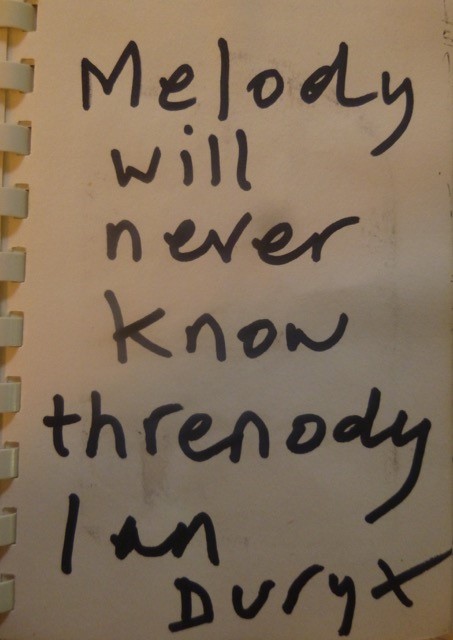 Melody
will
never
know
threnody
Ian
Dury x